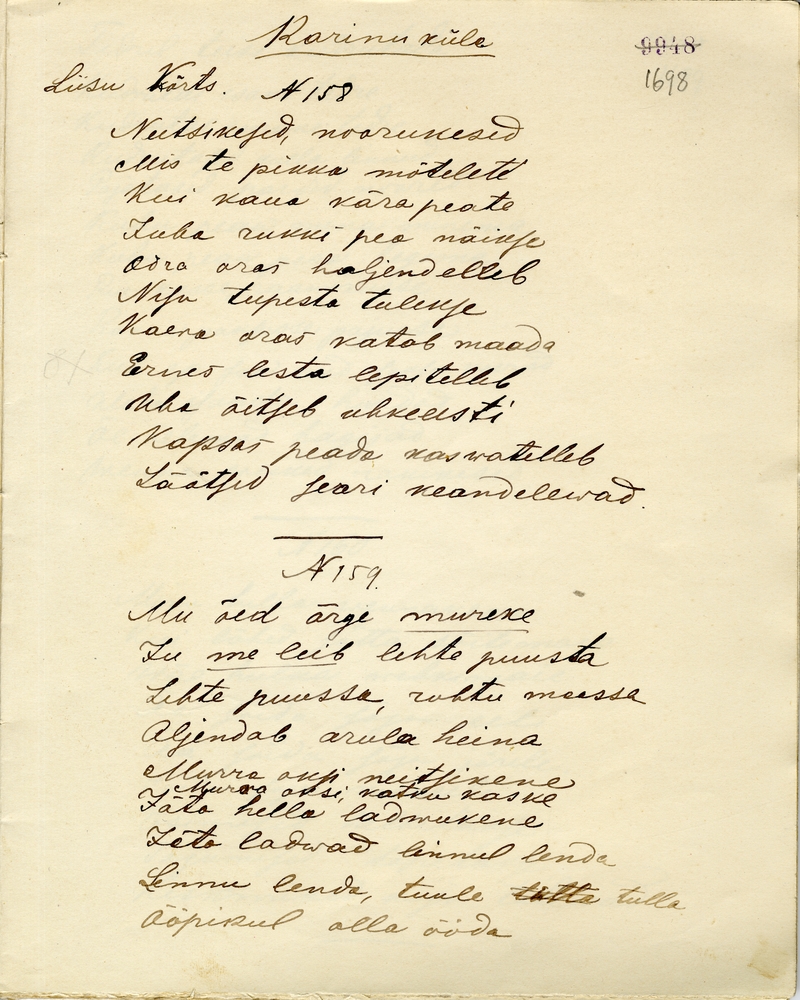 Karinu küla
9948
1698
Liisu Kõrts. № 158
Neitsikesed, noorukesed
Mis te pikka mõtelete
Kui kaua kära peate
Juba rukki pea näikse
Odra oras haljendelleb
Nisu tupesta tulekse
Kaera oras katab maada
Ernes lesta lepitelleb
Uba õitseb uhkeesti
Kapsas peada kaswatelleb
Läätsed seari keandelewad.
№ 159.
Mu õed ärge mureke
Ju me leib lehte puusta
Lehte puussa, rohtu maessa
Aljendab arula heina
Murra oksi neitsikene
Murra oksi, katku kaske
Jäta hella ladwukene
Jäta ladwad linnul lenda
Linnu lenda, tuule tulla
Ööpikul olla ööda